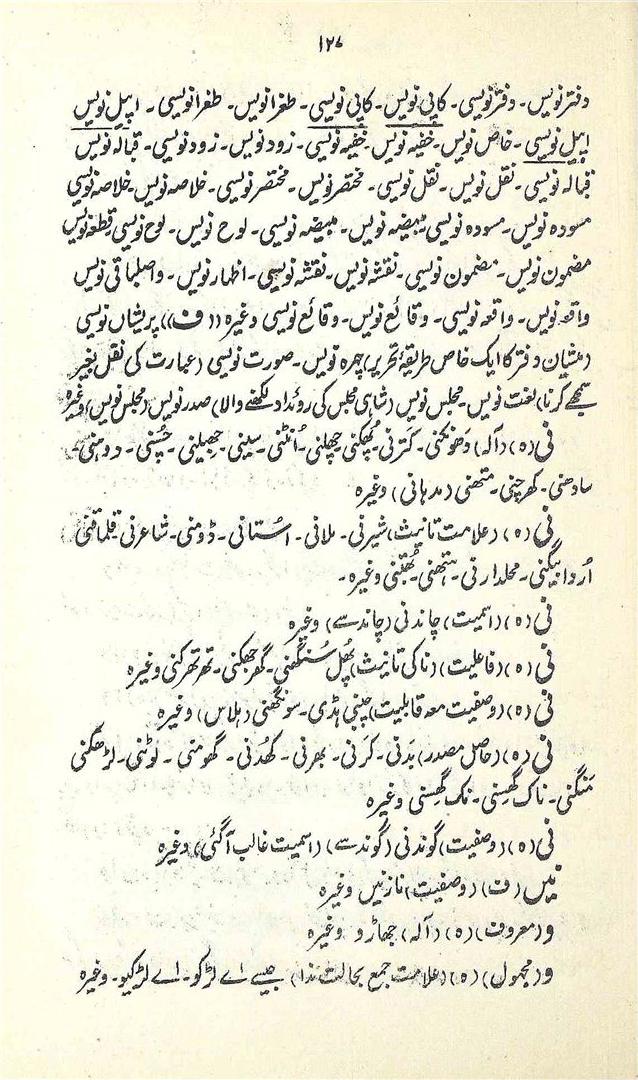 ۱۲۷
دفتر نویس۔ دفتر نویسی۔ کاپی نویس۔ کاپی نویسی۔ طغرا نویس۔ طغرا نویسی۔ اپیل نویس
اپیل نویسی۔ خاص نویس۔ خفیہ نویس۔ خفیہ نویسی۔ زود نویس۔ زود نویسی۔ قبالہ نویس
قبالہ نویسی۔ نقل نویس۔ نقل نویسی۔ مختصر نویس۔ مختصر نویسی۔ خلاصہ نویس۔ خلاصہ نویسی
مسودہ نویس۔ مسودہ نویسی۔ مبیضہ نویس۔ مبیضہ نویسی۔ لوح نویس۔ لوح نویسی۔ قطعہ نویس
مضمون نویس۔ مضمون نویسی۔ نقشہ نویس۔ نقشہ نویسی۔ اظہار نویس۔ واصلباقی نویس
واقعہ نویس۔ واقعہ نویسی۔ وقائع نویس۔ وقائع نویسی وغیرہ ((ف)) پریشاں نویسی
(منشیان دفتر کا ایک خاص طریقۂ تحریر) چہرہ نویس۔ صورت نویسی (عبارت کی نقل بغیر
سمجھے کرنا) لغت نویس۔ مجلس نویس (شاہی مجلس کی روئداد لکھنے والا) صدر نویس (مجلس نویس) وغیرہ
نی (ہ) (آلہ) دھونکنی۔ کترنی۔ پھکنی۔ چھلنی۔ اُنٹنی۔ سینی۔ جھیلنی۔ چُسنی۔ دوہنی۔
سادھنی۔ کھرچنی۔ متھنی (مدہانی) وغیرہ
نی (ہ) (علامت تانیث) شیرنی۔ ملانی۔ اُستانی۔ ڈومنی۔ شاعرنی۔ قلماقنی
اُردابیگنی۔ محلدارنی۔ ہتھنی۔ بھتنی وغیرہ۔
نی (ہ) (اسمیت) چاندنی (چاند سے) وغیرہ
نی (ہ) (فاعلیت) (نا کی تانیث) پھل سُنگھنی۔ گھر جھکنی۔ تھرتھرکنی وغیرہ
نی (ہ) (وصفیت معہ قابلیت) چپنی ہڈی۔ سونگھنی (ہلاس) وغیرہ
نی (ہ) (حاصل مصدر) بدنی۔ کرنی۔ بھرنی۔ کھُدنی۔ گھومنی۔ لوٹنی۔ لڑھکنی
منگنی۔ ناک گھِسنی۔ نک گھِسنی وغیرہ
نی (ہ) (وصفیت) گوندنی (گوند سے) (اسمیت غالب آگئی) وغیرہ
نیں (ف) (وصفیت) نازنیں وغیرہ
و (معروف) (ہ) (آلہ) جھاڑو وغیرہ
و (مجہول) (ہ) (علامت جمع بحالت ندا) جیسے اے لڑکو۔ اے لڑکیو۔ وغیرہ